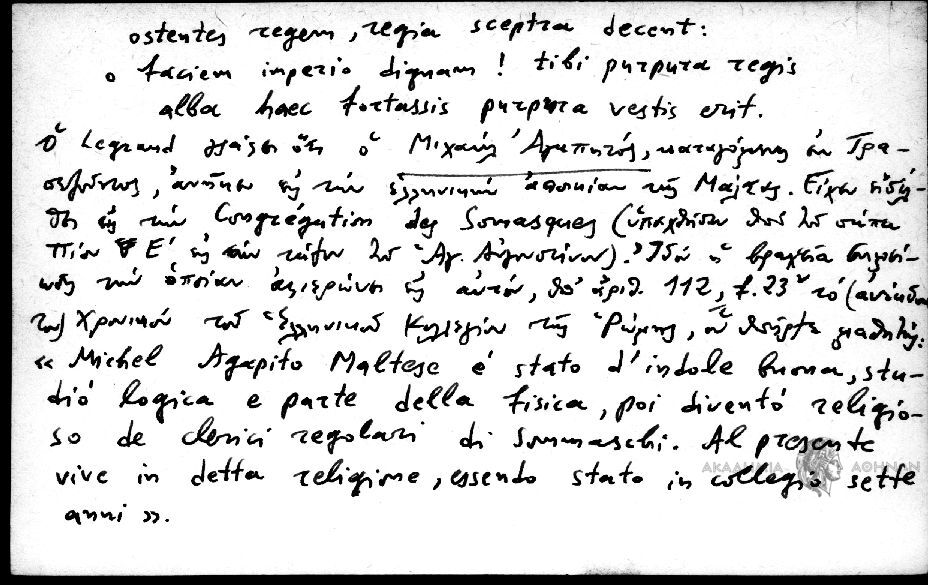 ostentes regem, regia sceptra decent:
o faciem imperio dignam! tibi purpura regis
alba haec fortassis purpura vestis erit.
Ὁ Legrand γράφει ὅτι ὁ Μιχαὴλ Ἀγαπητός, καταγόμενος ἐκ Τρα-
πεζοῦντος, ἀνῆκεν εἰς τὴν ἑλληνικὴν ἀποικίαν τῆς Μάλτης. Εἶχεν εἰσέλ-
θει εἰς τὴν Congrégation des Somasques (ὑπαχθεῖσαν ὑπὸ τοῦ πάπα
Πίου Ε΄, εἰς τὴν τάξιν τοῦ Ἁγ. Αὐγουστίνου). Ἰδοὺ ἡ βραχεῖα σημείω-
σις τὴν ὁποίαν ἀφιερώνει εἰς αὐτόν, ὑπ' ἀριθ. 112, f. 23ᵛ τὸ (ἀνέκδο
τον) Χρονικὸν τοῦ Ἑλληνικοῦ Κολλεγίου τῆς Ῥώμης, οὗ ὑπῆρξε μαθητής:
«Michel Agapito Maltese é stato d'indole buona, stu-
dió logica e parte della fisica, poi diventó religio-
so de clerici regolari di Sommaschi. Al presente
vive in detta religione, essendo stato in collegio sette
anni».
ΑΚΑΔΗΜΙΑ ΑΘΗΝΩΝ